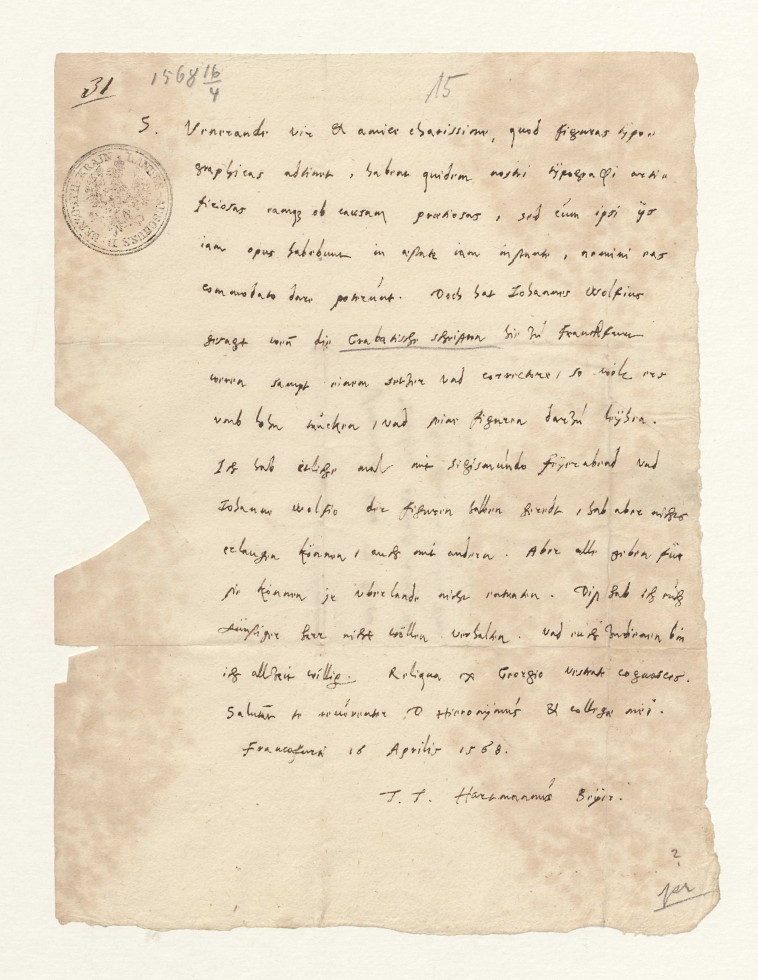 31
1568 16/4
15
S. Venerande vir et amice charissime, quod figuras typo-
graphicas adtinet, habent quidem nostri typographi artifi-
ficiosas eamq; ob causam pretiosas, sed cum ipsi ijs
iam opus habebunt in æstate iam instante, nemini eas
commodato dare poterunt. Doch hat Johannes Wolfius
gesagt wen die Crabatische schrifften hie zu Franckfurt
weren sampt einem setzer vnd correctore, so wolt ers
vmb lohn trucken, vnd seine figuren darzu leyhen.
Ich hab etliche mal mit Sigismundo Feyerabend vnd
Johanne Wolfio der figuren halben geredt, hab aber nichts
erlangen können, auch mit andern. Aber alle geben für
sie können je vberlande nicht entraten. Diß hab ich euch
günstiger herr nicht wöllen verhalten. Vnd euch zu dienen bin
ich allzeit willig. Reliqua ex Georgio vestrate cognosces.
Salutant te reverenter D Hieronymus et collegæ mei.
Francofurti 16 Aprilis 1568.
T. T. Hartmannus Beyer.
LANDES AUSSCHUSS D. HERZOGTH. KRAIN
2